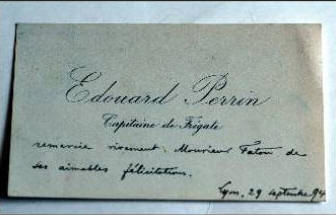 Edouard Perrin
Capitaine de Frégate
remercie vivement Monsieur Fatou de
ses aimables félicitations.
Lyon, 29 septembre 94